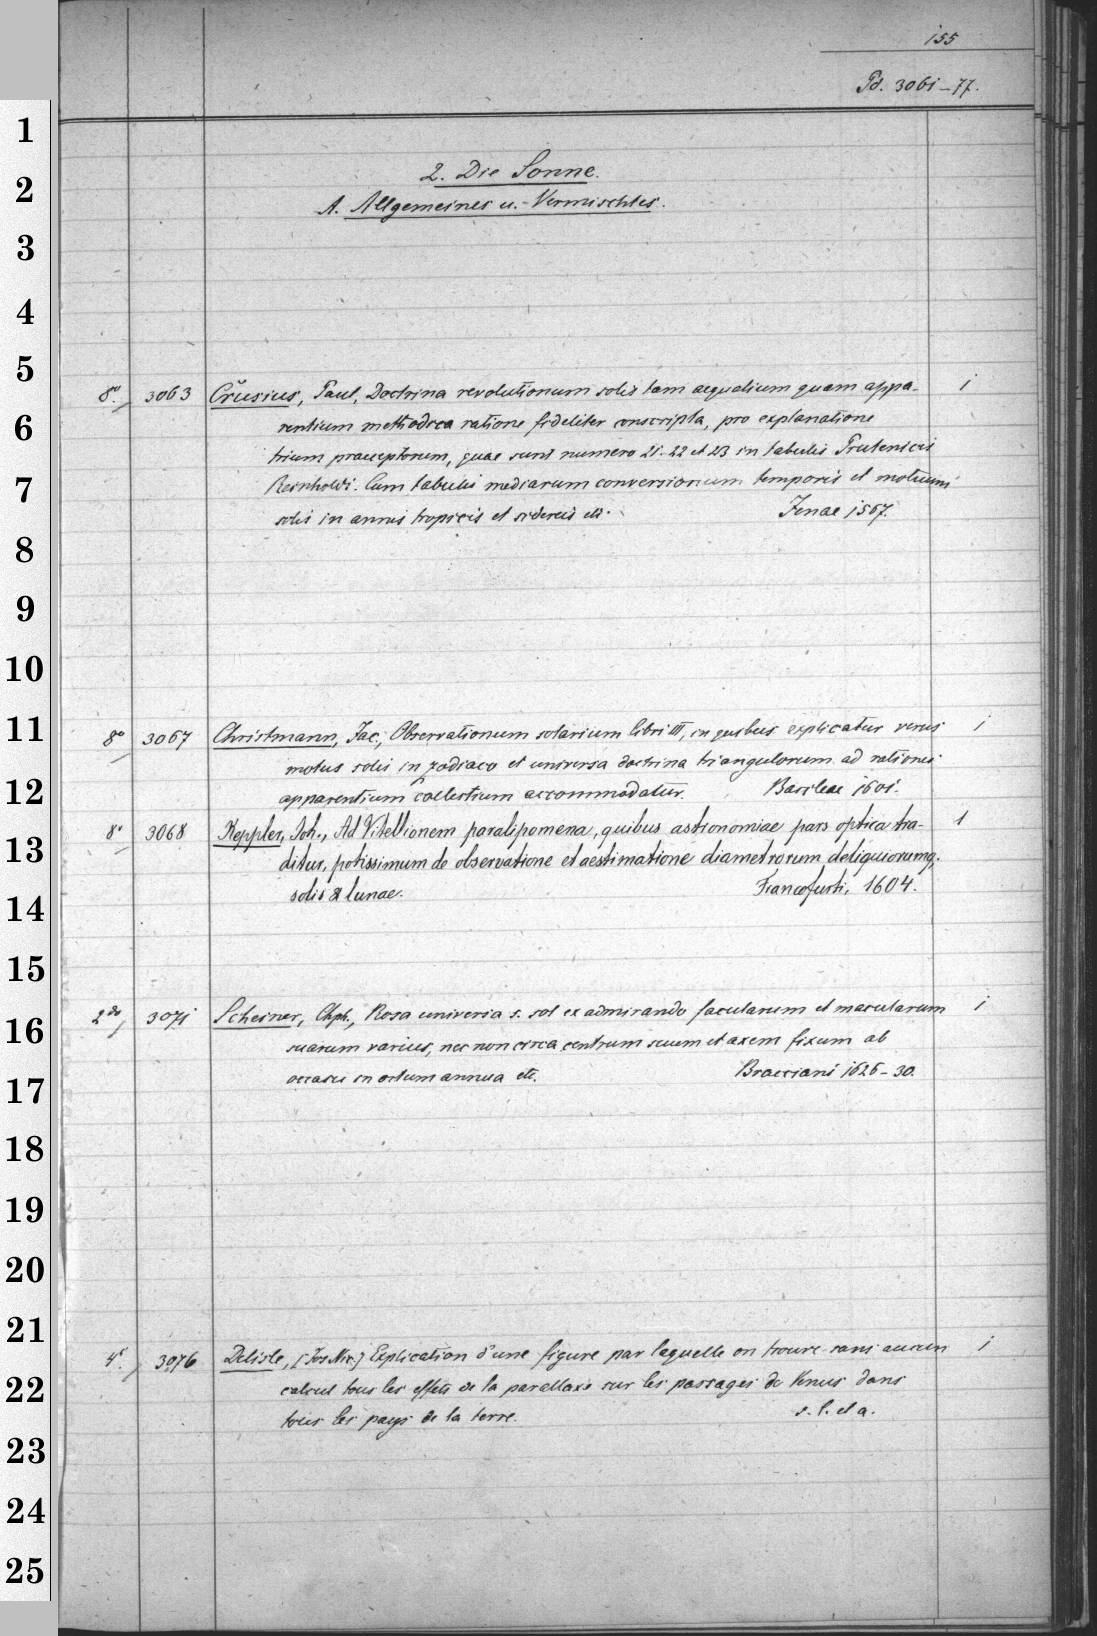 155
Pd. 3061-77.
1
2. Die Sonne.
2
A. Allgemeines u. Vermischtes.
3
4
5
8° 3063 Crusius, Paul, Doctrina revolutionum solis tam aequalium quam appa- 1
6
rentium methodica ratione fideliter conscripta, pro explanatione
trium praeceptorum, quae sunt numero 21. 22 et 23 in tabulis Prutenicis
7
Reinholdi. Cum tabulis mediarum conversionum temporis et motuum
solis in annis tropicis et sidereis etc. Jenae 1567.
8
9
10
11
8° 3067 Christmann, Jac., Observationum solarium libri III, in quibus explicatur verus 1
motus solis in zodiaco et universa doctrina triangulorum ad rationes
12
apparentium coelestium accommodatur. Basileae 1601.
8° 3068 Keppler, Joh., Ad Vitellionem paralipomena, quibus astronomiae pars optica tra- 1
13
ditur, potissimum de observatione et aestimatione diametrorum deliquiorumq.
14
solis & lunae. Francofurti, 1604.
15
2do 3071 Scheiner, Chph., Rosa universa s. sol ex admirando facularum et macularum 1
16
suarum varius, nec non circa centrum suum et axem fixum ab
17
occasu in ortum annua etc. Bracciani 1626-30.
18
19
20
21
4°. 3076 Delisle, (Jos. Nic.) Explication d'une figure par laquelle on trouve sans aucun 1
22
calcul tous les effets de la parallaxe sur les passages de Venus dans
tous les pays de la terre. s. l. et a.
23
24
25